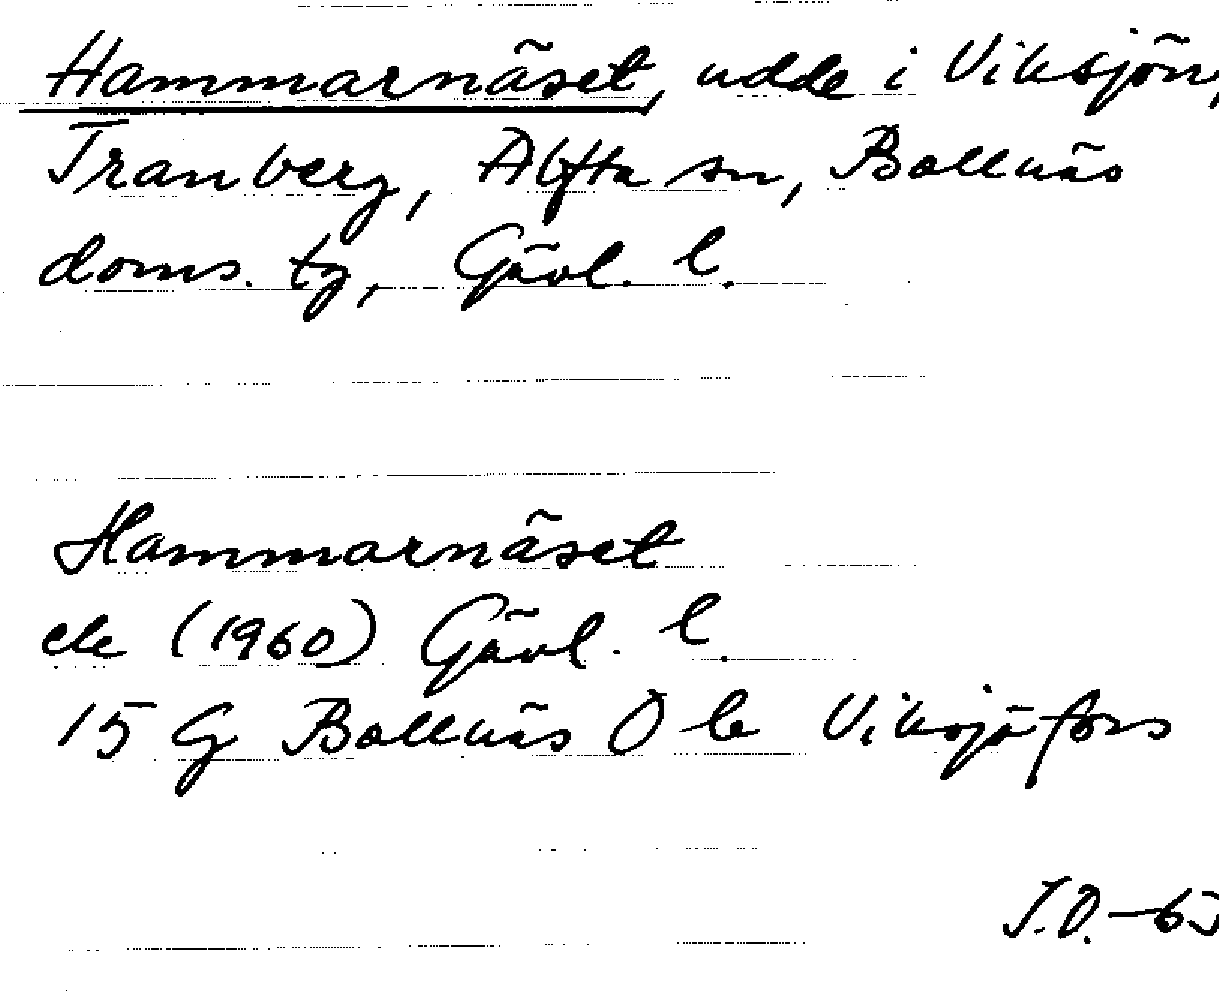 Hammarnäset, udde i Viksjön,
Tranberg, Alfta sn, Bollnäs
doms. tg, Gävl. l.
Hammarnäset
ek (1960) Gävl. l.
15 G Bollnäs O b Viksjöfors
J.O.-65